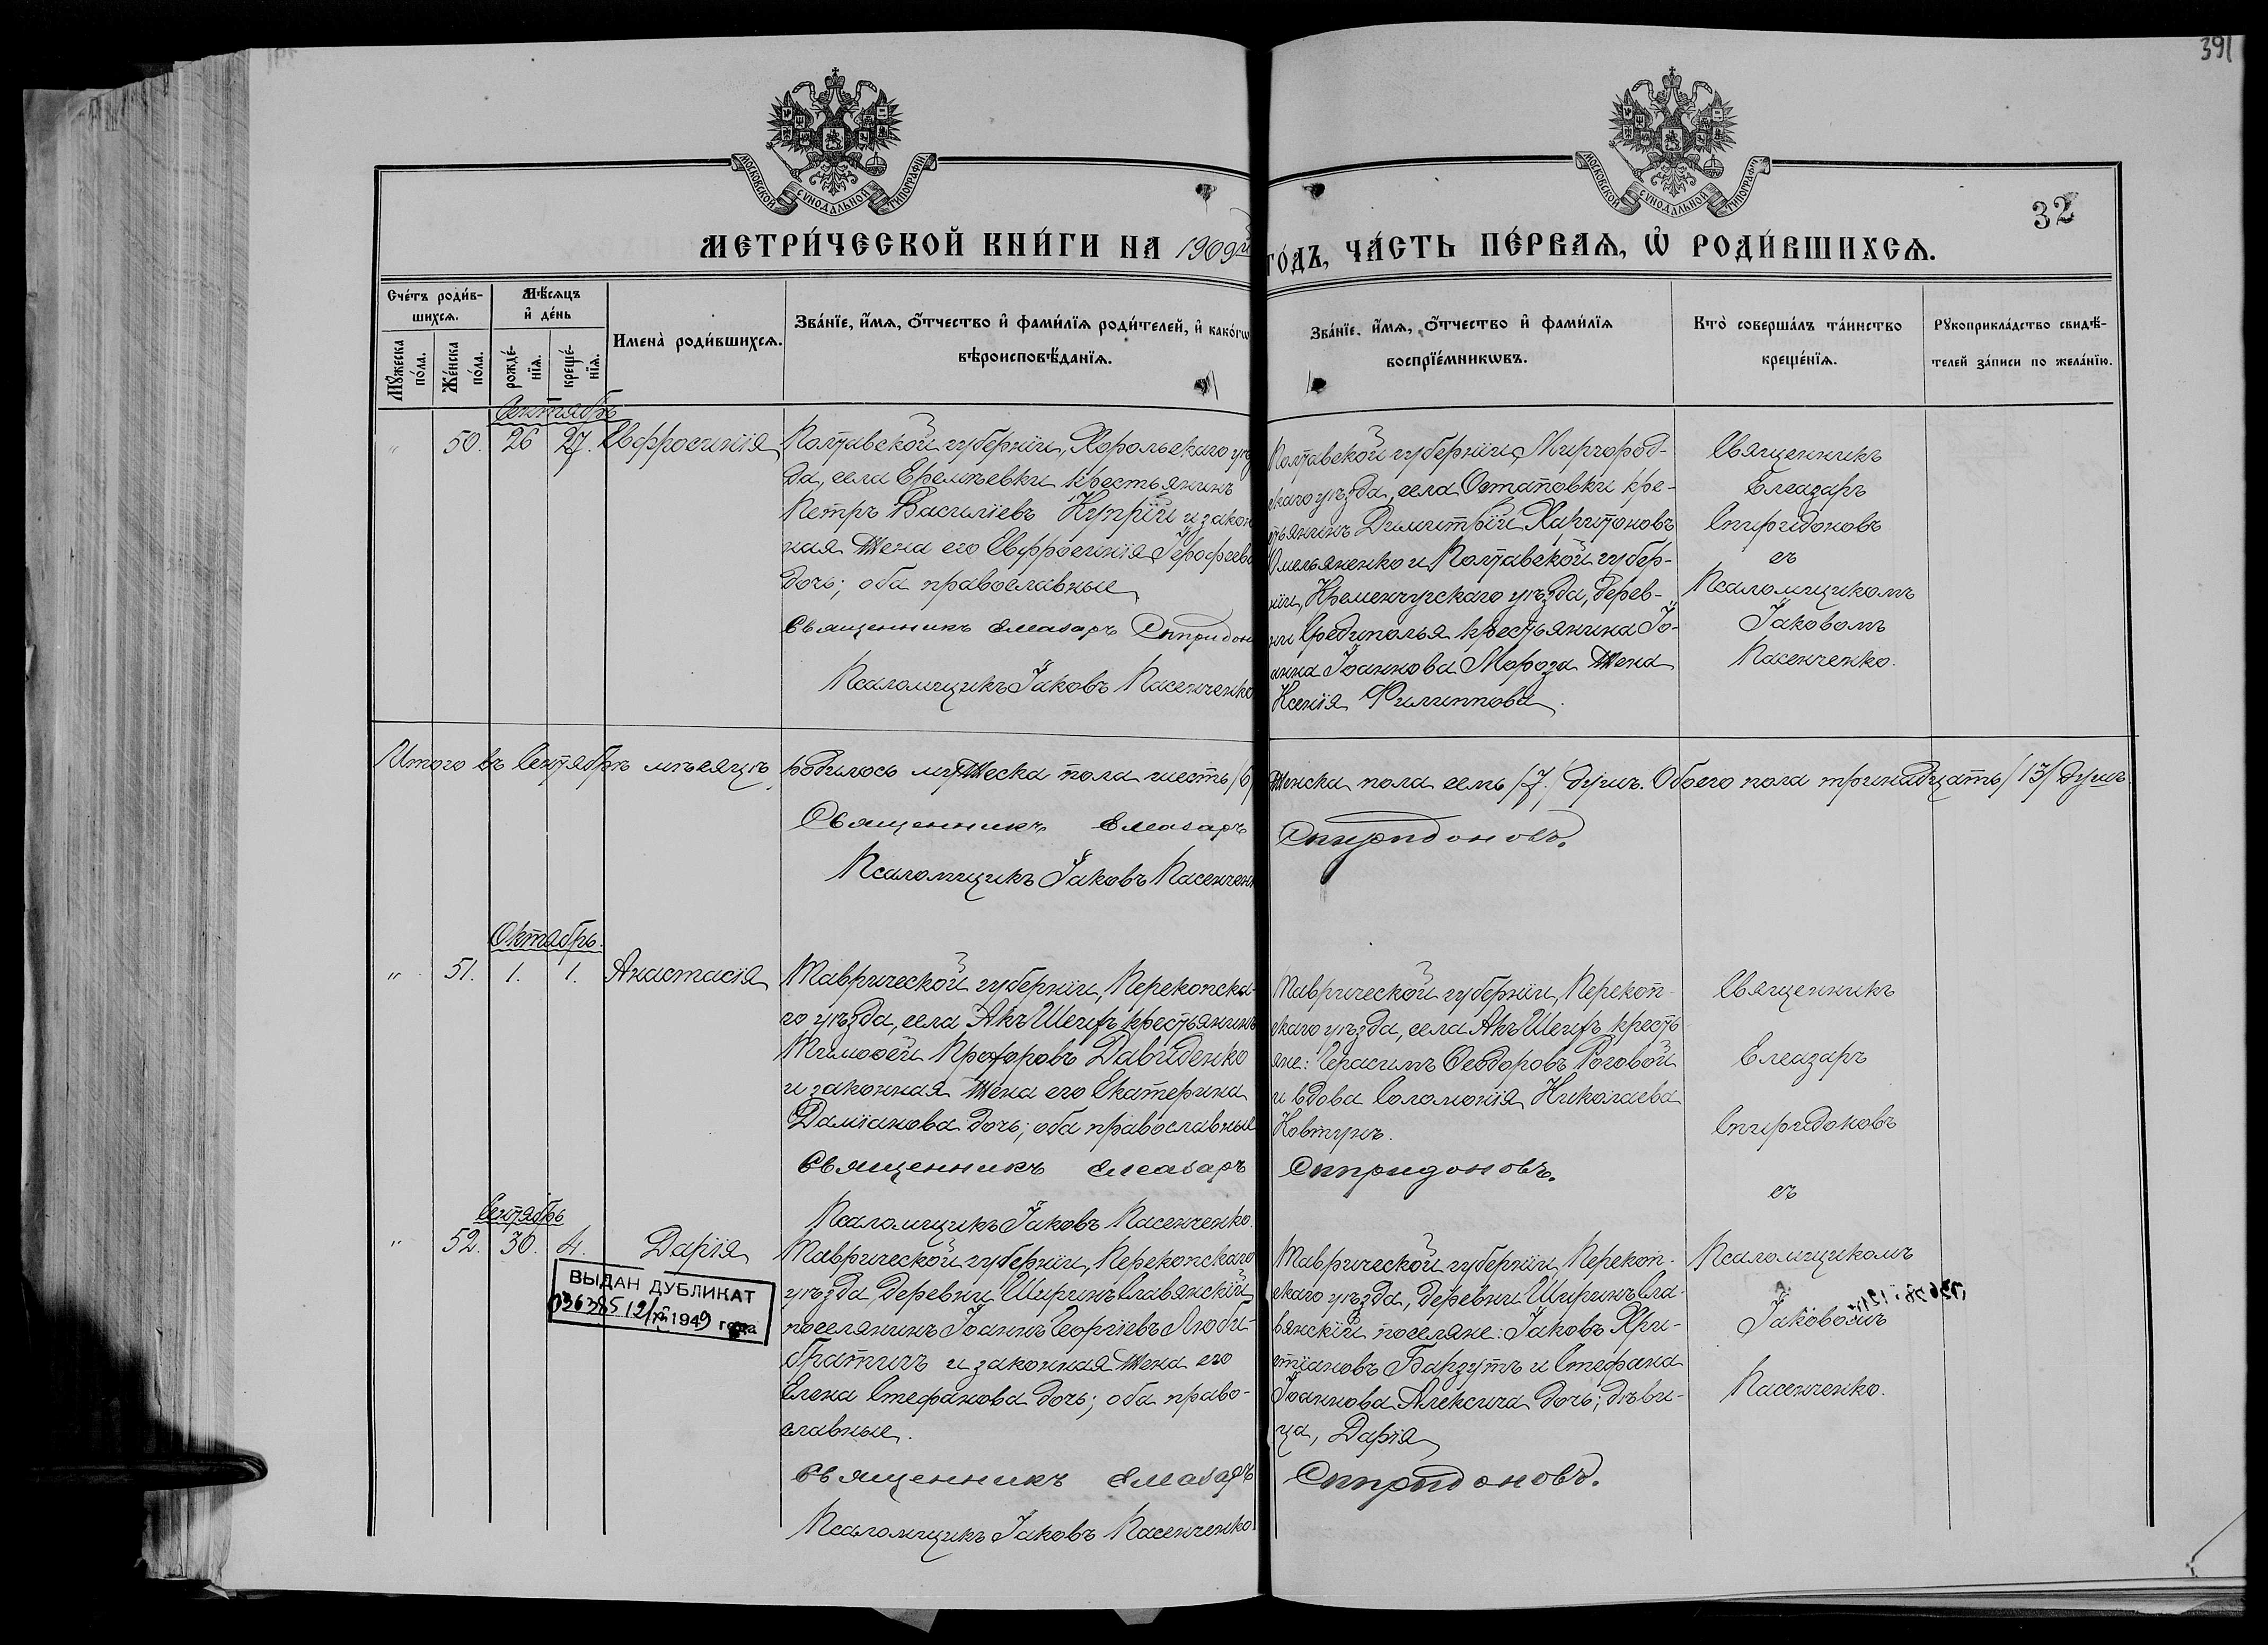 391
МОСКОВСКОЙ СѴНОДАЛЬНОЙ ТИПОГРАФІИ
МОСКОВСКОЙ СѴНОДАЛЬНОЙ ТИПОГРАФІИ
32
МЕТРИ́ЧЕСКОЙ КНИ́ГИ НА 1909й
ГО́ДЪ, ЧА́СТЬ ПЕ́РВАѦ, Ѡ҆ РОДИ́ВШИХСѦ.
Сче́тъ роди́в-
шихсѧ.
Мꙋ́жеска по́ла.
Же́нска по́ла.
Мѣ́сѧцъ
и҆ де́нь
рожде́-
нїѧ.
креще́-
нїѧ.
И҆мена̀ роди́вшихсѧ.
Зва́нїе, и҆́мѧ, ѻ҆́тчество и҆ фами́лїѧ роди́телей, и҆ како́гѡ
вѣроисповѣ́данїѧ.
Зва́нїе, и҆́мѧ, ѻ҆́тчество и҆ фами́лїѧ
воспрїе́мникѡвъ.
Кто̀ соверша́лъ та́инство
креще́нїѧ.
Рꙋкоприкла́дство свидѣ́-
телей за́писи по жела́нїю.
Сентябрь
" 50. 26 27. Евфросинія
Полтавской губерніи, Хорольскаго уѣз
да, села Еремѣевки крестьянинъ
Петръ Василіевъ Купрій и закон
ная жена его Евфросинія Герофеева
дочь; оба православные
Священникъ Елеазаръ Спиридон
Псаломщикъ Іаковъ Пасенченко
Полтавской губерніи, Миргород-
скаго уѣзда, села Остаповки кре-
стьянинъ Димитрій Харитоновъ
Омельяненко и Полтавской губер-
ніи, Кременчугскаго уѣзда, дерев-
ни Средиполья крестьянина Іо-
анна Іоаннова Мороза жена
Ксенія Филиппова.
Священникъ
Елеазаръ
Спиридоновъ
съ
Псаломщикомъ
Іаковомъ
Пасенченко.
Итого въ Сентябрѣ мѣсяцѣ родилось мужеска пола шесть /6/ женска пола семь /7/ душъ. Обоего пола тринадцать /13/ душъ.
Священникъ Елеазаръ Спиридоновъ.
Псаломщикъ Іаковъ Пасенчен
Октябрь.
" 51. 1. 1. Анастасія
Таврической губерніи, Перекопска-
го уѣзда, села Акъ Шеихъ крестьянинъ
Тимоѳей Прохоровъ Давиденко
и законная жена его Екатерина
Даміанова дочь; оба православные
Священникъ Елеазаръ Спиридоновъ.
Псаломщикъ Іаковъ Пасенченко.
Таврической губерніи, Перекоп-
скаго уѣзда, села Акъ Шеихъ кресть
яне: Герасимъ Ѳеодоровъ Роговой
и вдова Соломонія Николаева
Ковтунъ.
Священникъ
Елеазаръ
Спиридоновъ
съ
Псаломщикомъ
Іаковомъ
Пасенченко.
Сентябрь
" 52. 30. 4. Дарія
ВЫДАН ДУБЛИКАТ
036385 12/XI 1949 года
Таврической губерніи, Перекопскаго
уѣзда, деревни Ширинъ Славянскій
поселянинъ Іоаннъ Георгіевъ Люби-
братичъ и законная жена его
Елена Стефанова дочь; оба право-
славные.
Священникъ Елеазаръ Спиридоновъ.
Псаломщикъ Іаковъ Пасенченко
Таврической губерніи, Перекоп-
скаго уѣзда, деревни Ширинъ Сла-
вянскій поселяне: Іаковъ Хри-
стіановъ Барзутъ и Стефана
Іоаннова Алексича дочь; дѣви-
ца, Дарія